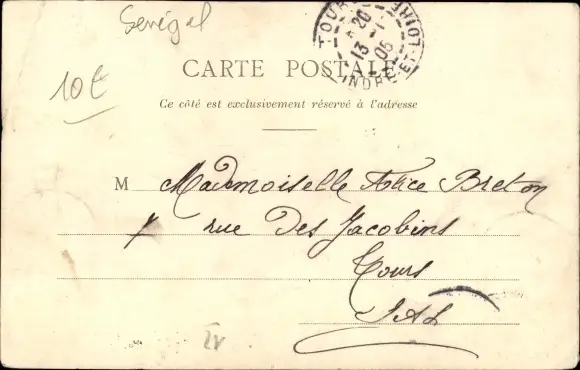 Sénégal
10 €
TOURS
INDRE-ET-LOIRE
20
13 -1
06
CARTE POSTALE
Ce côté est exclusivement réservé à l'adresse
M Mademoiselle Alice Breton
7 rue Des Jacobins
Tours
I&L